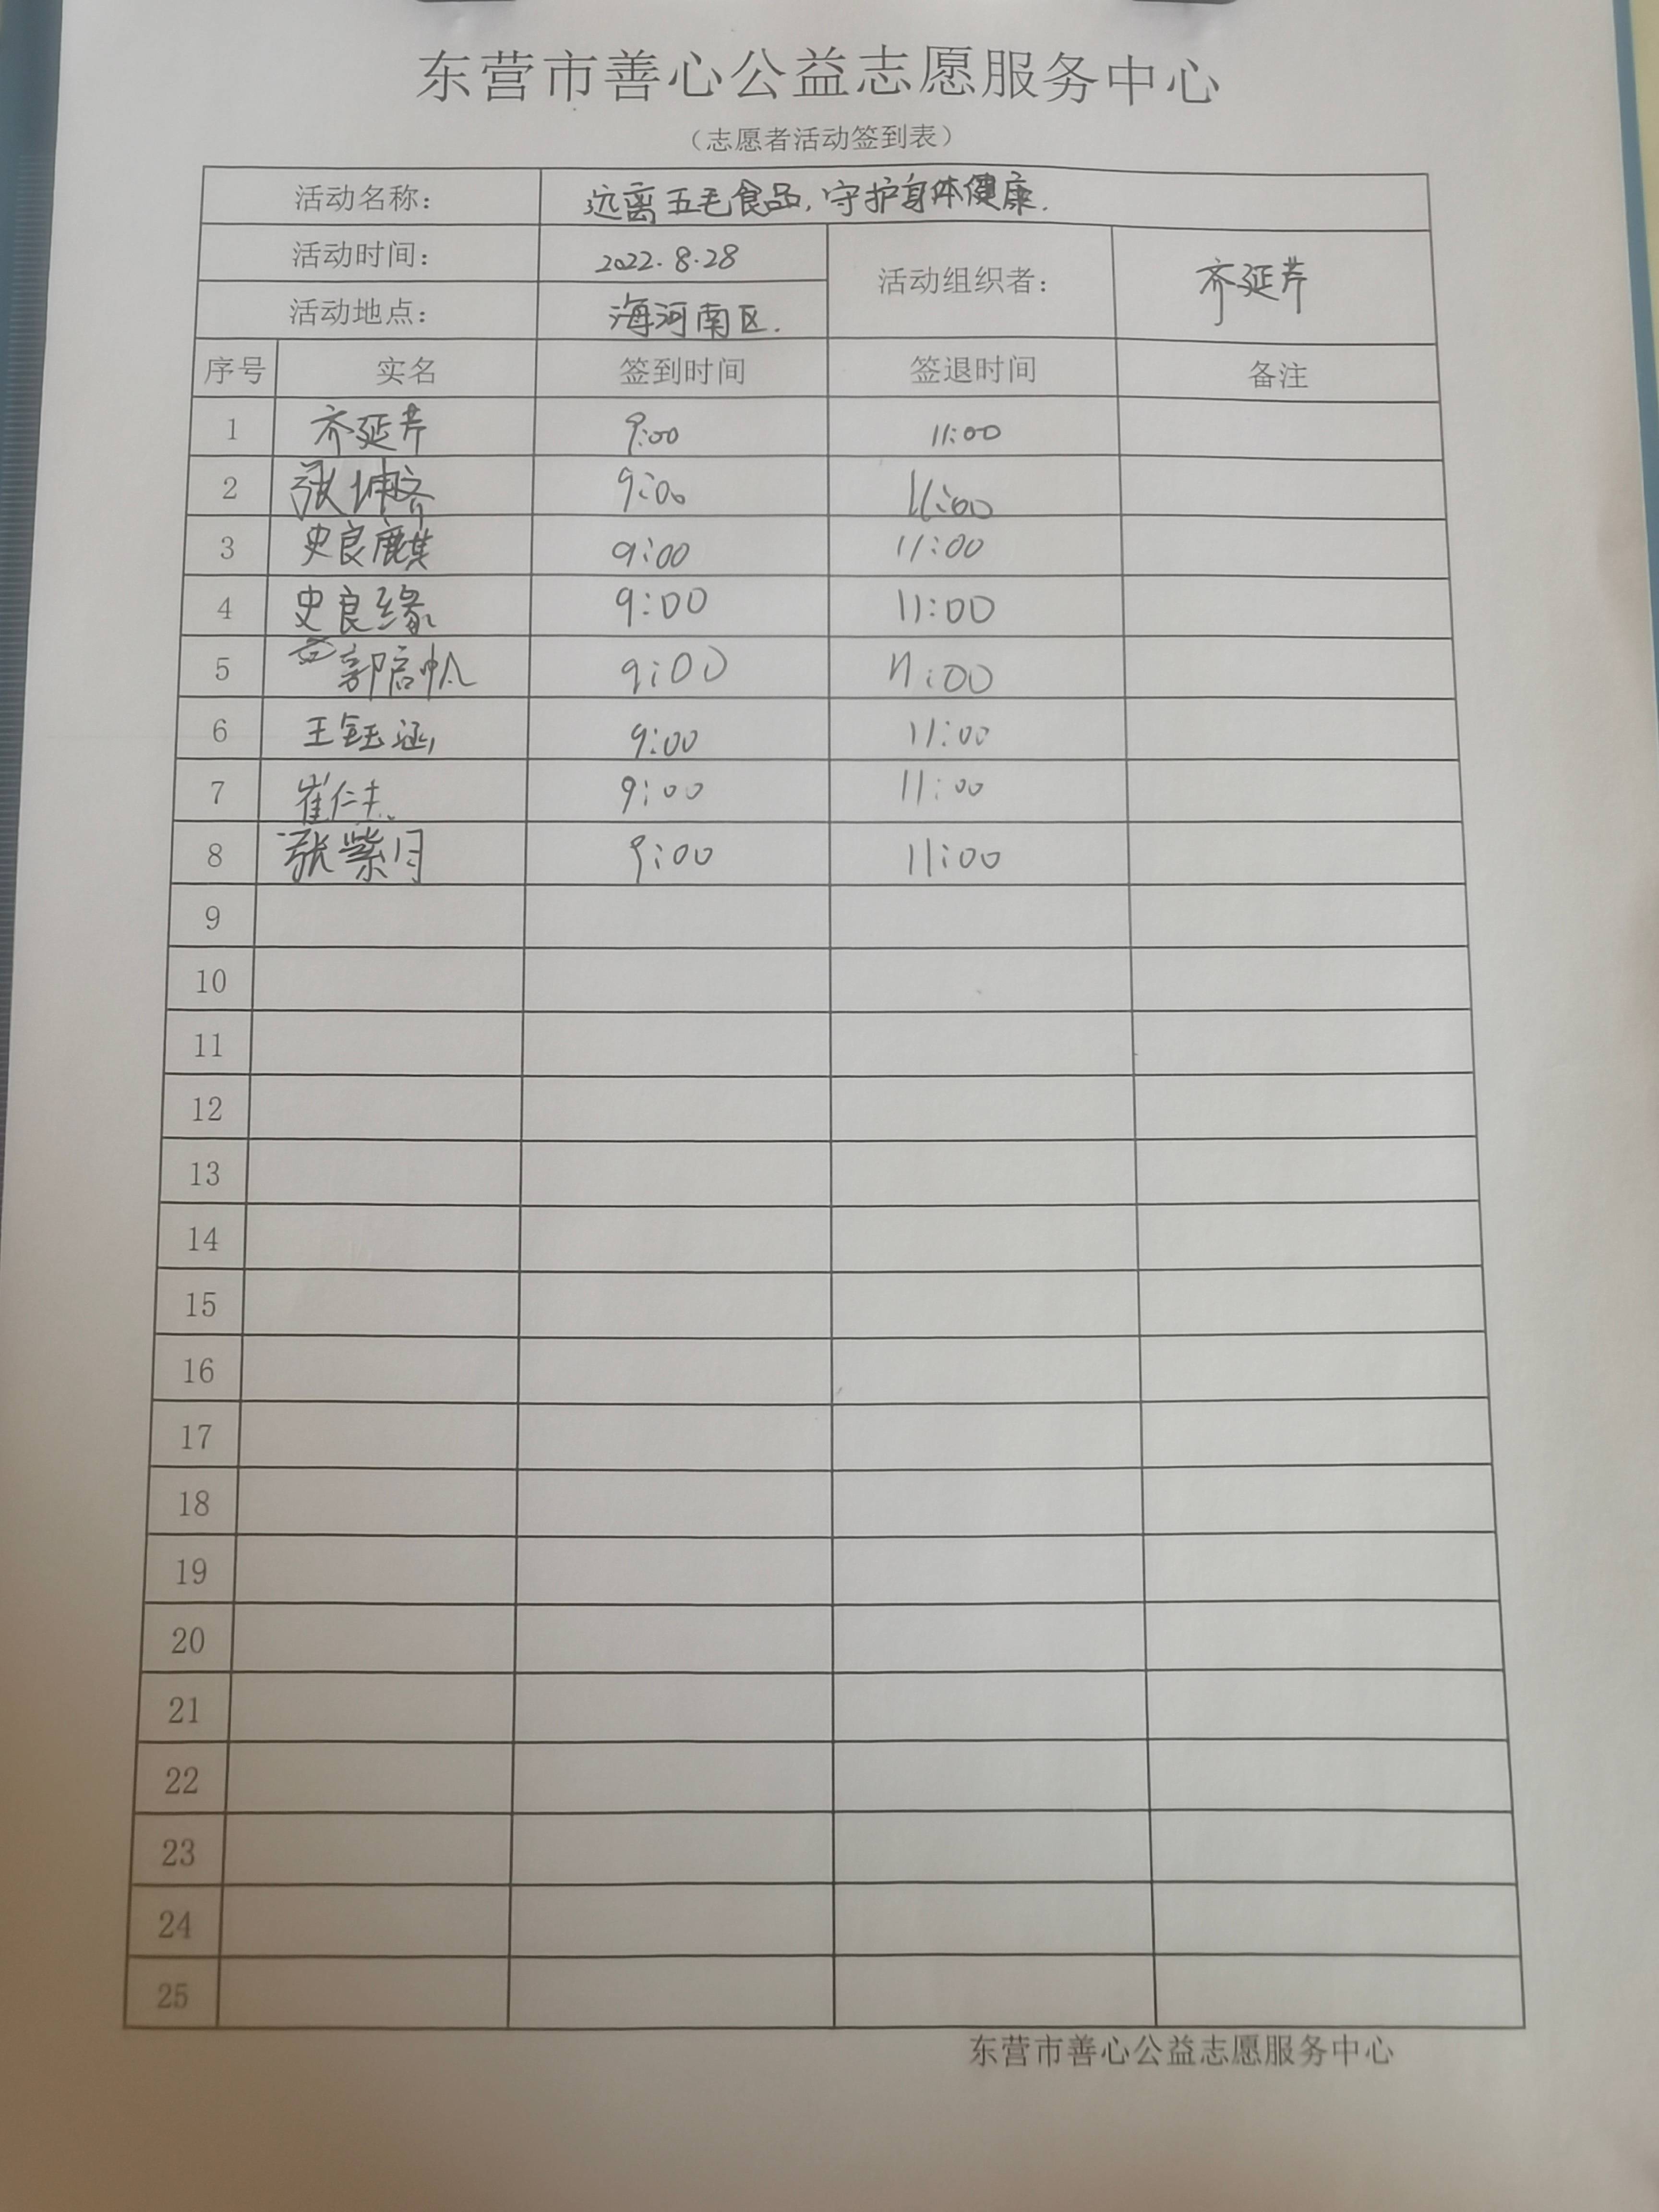 东营市善心公益志愿服务中心
（志愿者活动签到表）
活动名称： 远离五毛食品,守护身体健康.
活动时间： 2022.8.28 活动组织者： 齐延芹
活动地点： 海河南区.
序号 实名 签到时间 签退时间 备注
1 齐延芹 9:00 11:00
2 张坤齐 9:00 11:00
3 史良麒 9:00 11:00
4 史良缘 9:00 11:00
5 郭启帆 9:00 11:00
6 王钰涵 9:00 11:00
7 崔仁 9:00 11:00
8 张紫月 9:00 11:00
9
10
11
12
13
14
15
16
17
18
19
20
21
22
23
24
25
东营市善心公益志愿服务中心